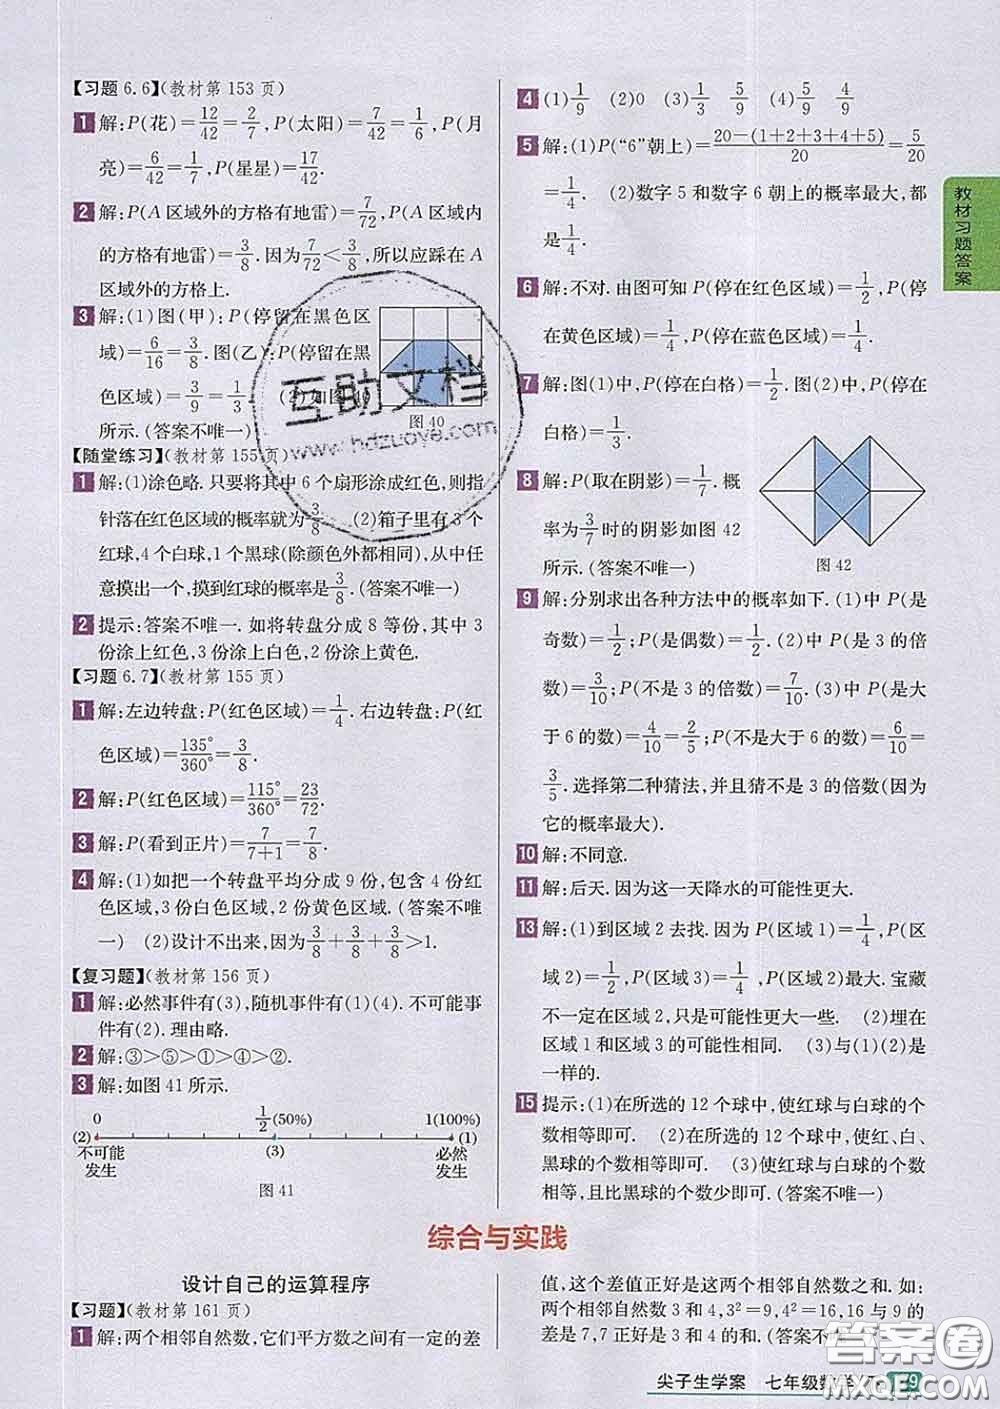 【习题 6.6】(教材第 153 页)
1 解:P(花)=12/42=2/7,P(太阳)=7/42=1/6,P(月
亮)=6/42=1/7,P(星星)=17/42.
2 解:P(A 区域外的方格有地雷)=7/72,P(A 区域内
的方格有地雷)=3/8. 因为7/72<3/8,所以应踩在 A
区域外的方格上.
3 解:(1)图(甲):P(停留在黑色区
域)=6/16=3/8. 图(乙):P(停留在黑
色区域)=3/9=1/3. (2)如图 40
所示. (答案不唯一)
图 40
【随堂练习】(教材第 155 页)
1 解:(1)涂色略. 只要将其中 6 个扇形涂成红色,则指
针落在红色区域的概率就为3/8 (2)箱子里有 3 个
红球,4 个白球,1 个黑球(除颜色外都相同),从中任
意摸出一个,摸到红球的概率是3/8. (答案不唯一)
2 提示:答案不唯一. 如将转盘分成 8 等份,其中 3
份涂上红色,3 份涂上白色,2 份涂上黄色.
【习题 6.7】(教材第 155 页)
1 解:左边转盘:P(红色区域)=1/4. 右边转盘:P(红
色区域)=135°/360°=3/8.
2 解:P(红色区域)=115°/360°=23/72.
3 解:P(看到正片)=7/(7+1)=7/8.
4 解:(1)如把一个转盘平均分成 9 份,包含 4 份红
色区域,3 份白色区域,2 份黄色区域. (答案不唯
一) (2)设计不出来,因为3/8+3/8+3/8>1.
【复习题】(教材第 156 页)
1 解:必然事件有(3),随机事件有(1)(4). 不可能事
件有(2). 理由略.
2 解:③>⑤>①>④>②.
3 解:如图 41 所示.
0 1/2(50%) 1(100%)
(2) (1)
不可能 (3) 必然
发生 发生
图 41
4 (1)1/9 (2)0 (3)1/3 5/9 (4)5/9 4/9
5 解:(1)P(“6”朝上)=(20-(1+2+3+4+5))/20=5/20
=1/4. (2)数字 5 和数字 6 朝上的概率最大,都
是1/4.
6 解:不对. 由图可知 P(停在红色区域)=1/2,P(停
在黄色区域)=1/4,P(停在蓝色区域)=1/4.
7 解:图(1)中,P(停在白格)=1/2. 图(2)中,P(停在
白格)=1/3.
8 解:P(取在阴影)=1/7. 概
率为3/7时的阴影如图 42
所示. (答案不唯一)
图 42
9 解:分别求出各种方法中的概率如下. (1)中 P(是
奇数)=1/2;P(是偶数)=1/2. (2)中 P(是 3 的倍
数)=3/10;P(不是 3 的倍数)=7/10. (3)中 P(是大
于 6 的数)=4/10=2/5;P(不是大于 6 的数)=6/10=
3/5. 选择第二种猜法,并且猜不是 3 的倍数(因为
它的概率最大).
10 解:不同意.
11 解:后天. 因为这一天降水的可能性更大.
13 解:(1)到区域 2 去找. 因为 P(区域 1)=1/4,P(区
域 2)=1/2,P(区域 3)=1/4,P(区域 2)最大. 宝藏
不一定在区域 2,只是可能性更大一些. (2)埋在
区域 1 和区域 3 的可能性相同. (3)与(1)(2)是
一样的.
15 提示:(1)在所选的 12 个球中,使红球与白球的个
数相等即可. (2)在所选的 12 个球中,使红、白、
黑球的个数相等即可. (3)使红球与白球的个数
相等,且比黑球的个数少即可. (答案不唯一)
教材习题答案
综合与实践
设计自己的运算程序
【习题】(教材第 161 页)
1 解:两个相邻自然数,它们平方数之间有一定的差
值,这个差值正好是这两个相邻自然数之和. 如:
两个相邻自然数 3 和 4,3²=9,4²=16,16 与 9 的
差是 7,7 正好是 3 和 4 的和. (答案不
尖子生学案 七年级数学
互助文档
www.hdzuoye.com
答案圈